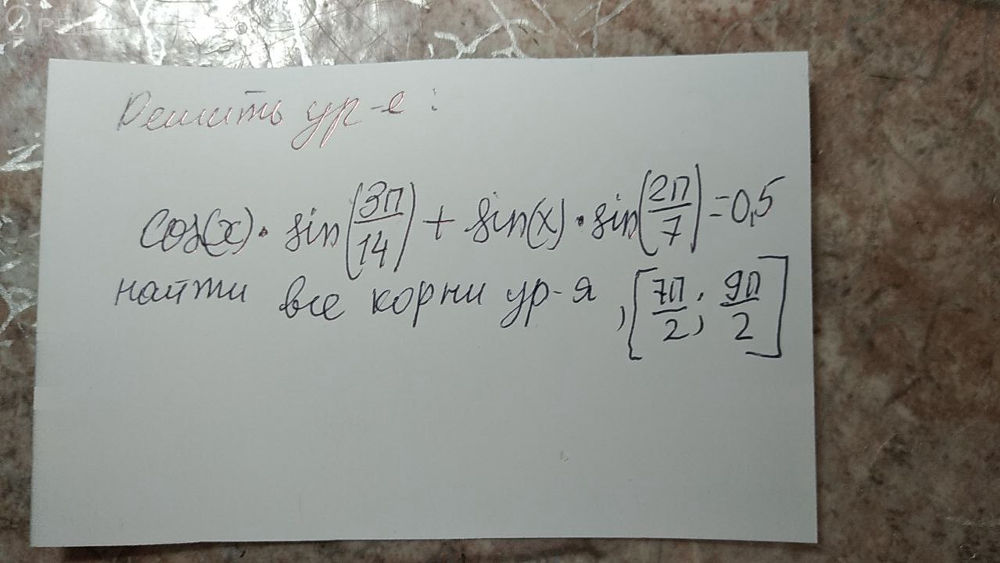 Решить ур-е:
cos(x)·sin(3π/14)+sin(x)·sin(2π/7)=0,5
найти все корни ур-я, [7π/2; 9π/2]